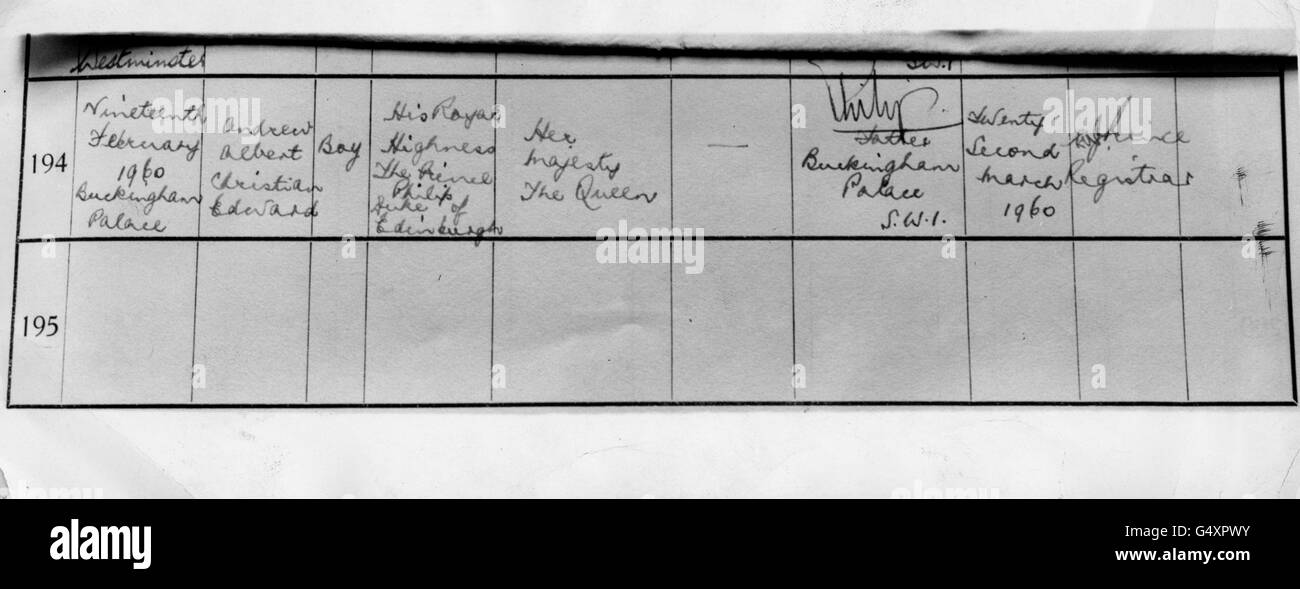 Westminster
S.W.1
194
Nineteenth
February
1960
Buckingham
Palace
Andrew
Albert
Christian
Edward
Boy
His Royal
Highness
The Prince
Philip
Duke of
Edinburgh
Her
Majesty
The Queen
—
Philip.
Father
Buckingham
Palace
S.W.1.
Twenty
Second
March
1960
Prince
Registrar
195
alamy
alamy
Image ID: G4XPWY
www.alamy.com